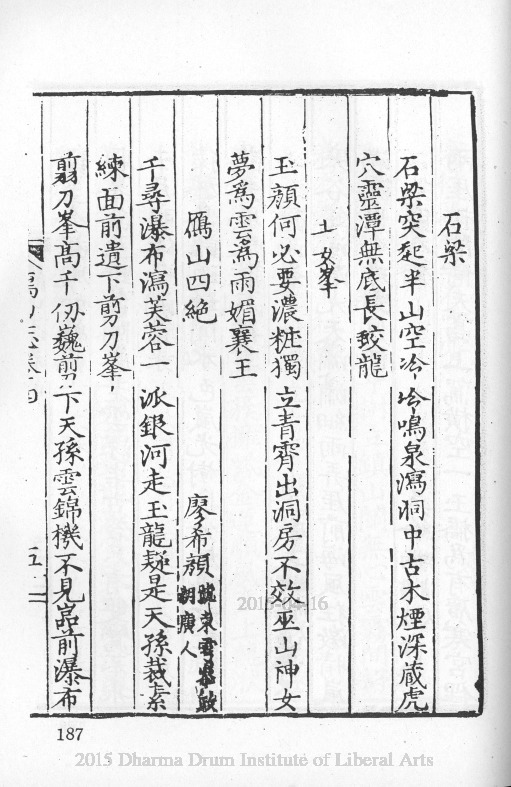 石梁
石梁突起半山空冷冷鳴泉瀉洞中古木煙深藏虎
穴靈潭無底長蛟龍
玉女峯
玉顏何必要濃粧獨立青霄出洞房不效巫山神女
夢為雲為雨媚襄王
鴈山四絕 廖希顏 東雲 人
千尋瀑布瀉芙蓉一派銀河走玉龍疑是天孫裁素
練面前遺下剪刀峯
剪刀峯髙千仞巍剪下天孫雲錦機不見嵒前瀑布
山志卷四 五
187
2015-04-16
2015 Dharma Drum Institute of Liberal Arts